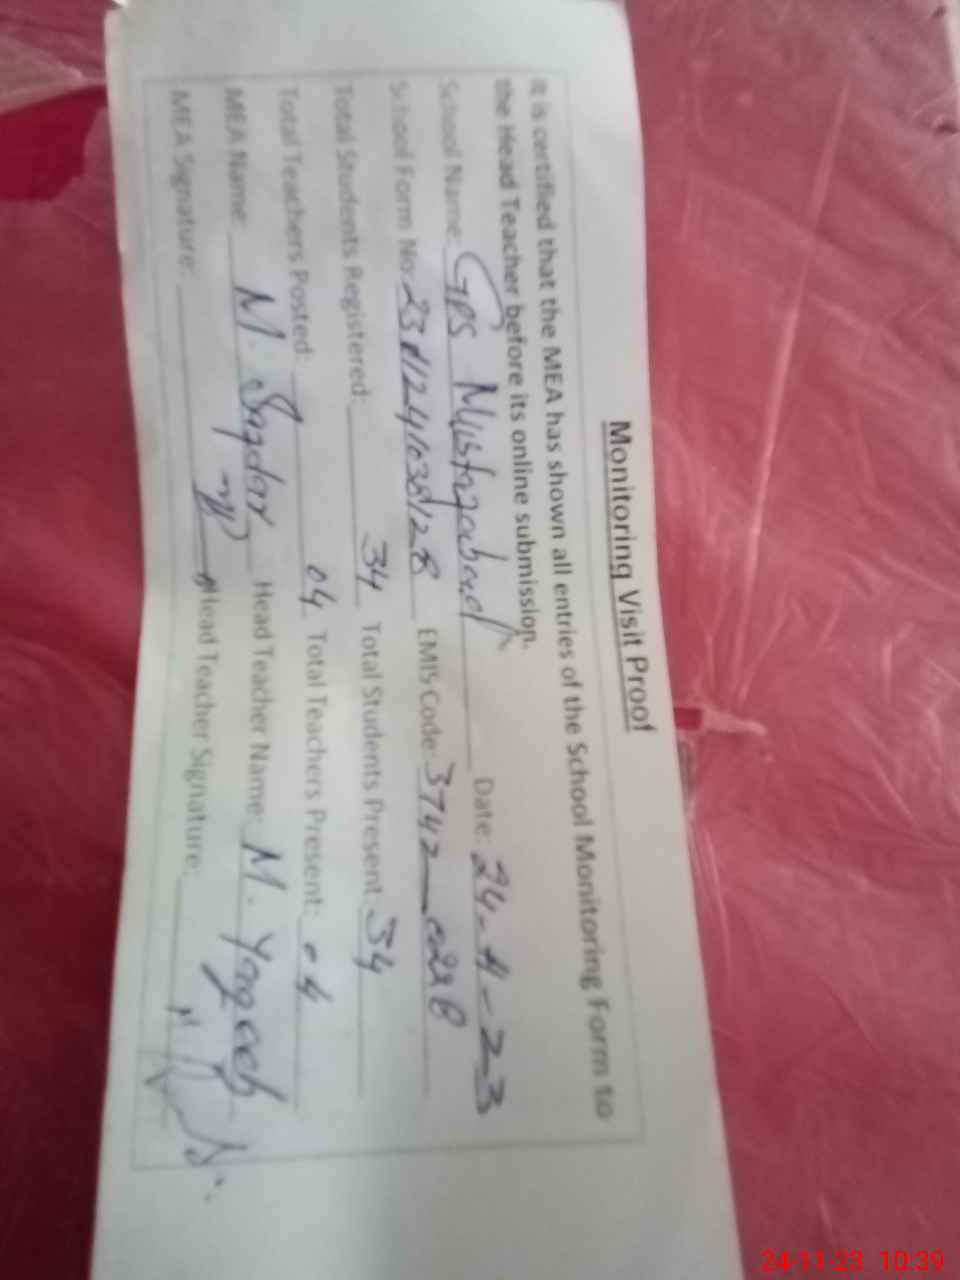 Monitoring Visit Proof
It is certified that the MEA has shown all entries of the School Monitoring Form to
the Head Teacher before its online submission.
School Name: GPS Mustafabad Date: 24-11-23
School Form No: EMIS Code:
Total Students Registered: 34 Total Students Present: 34
Total Teachers Posted: 04 Total Teachers Present: 04
MEA Name: M. Safdar Head Teacher Name: M.
MEA Signature: Head Teacher Signature:
24-11-23 10:39